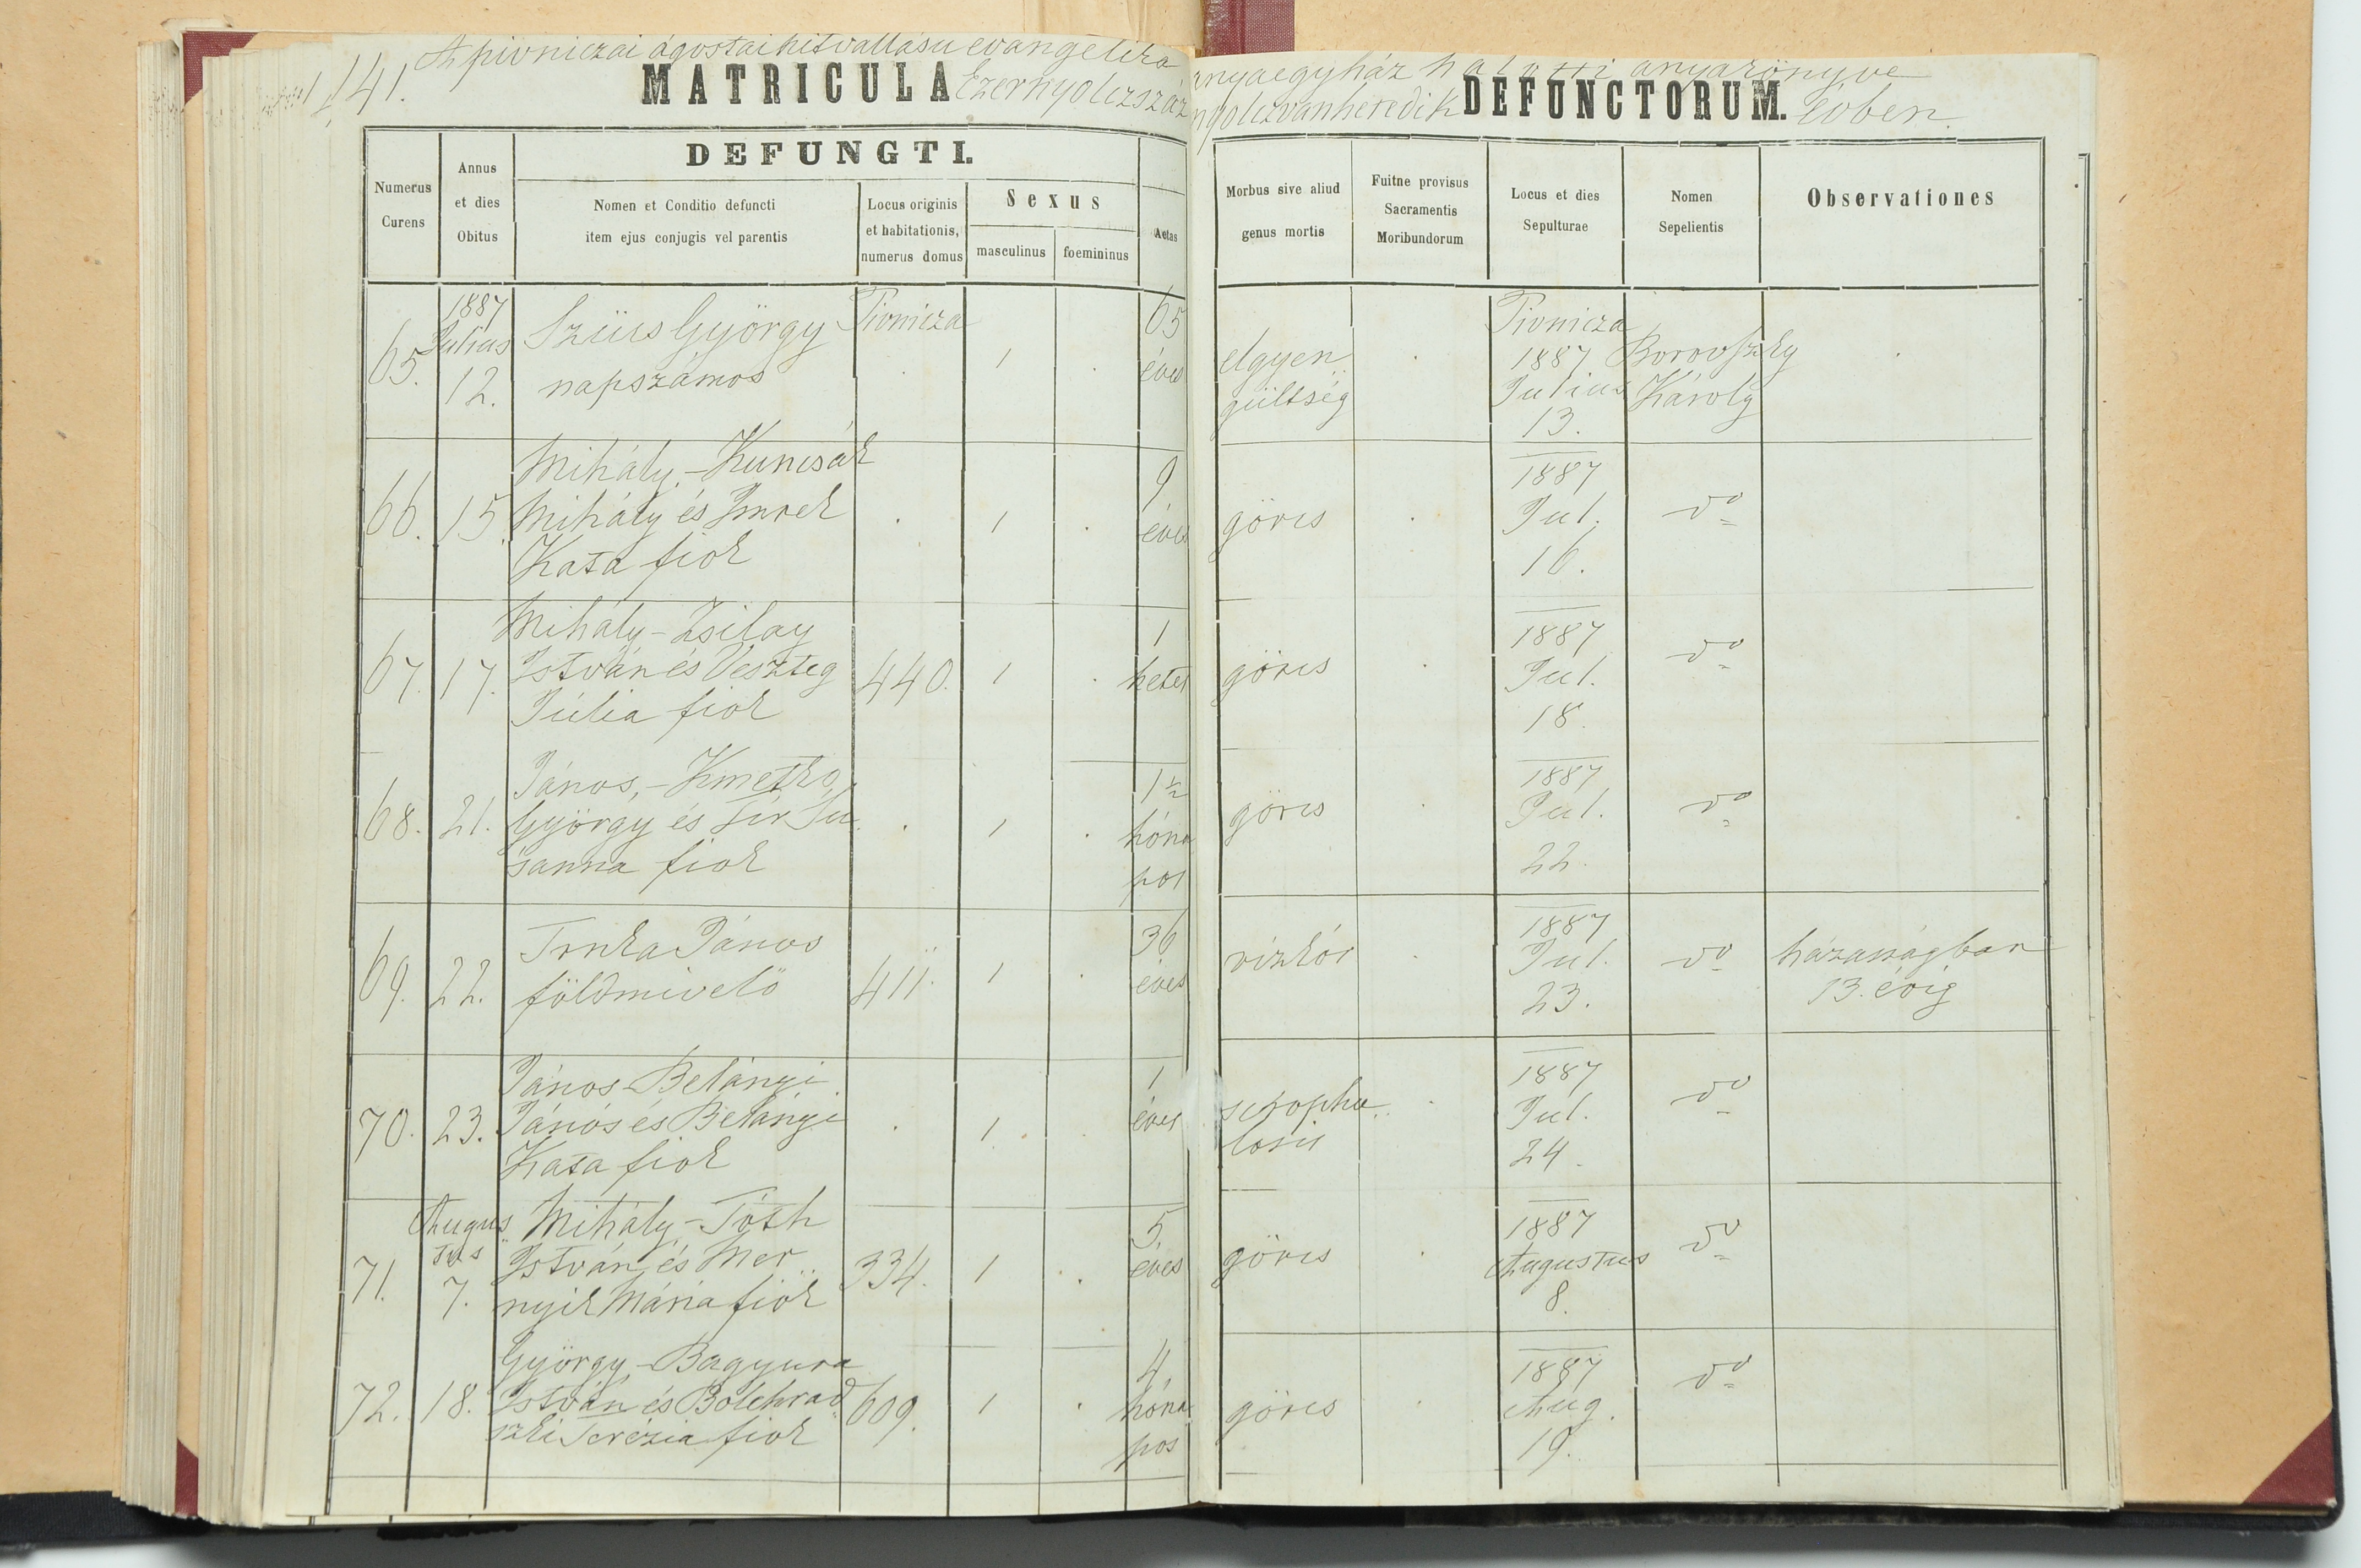 141. A pivniczai ágostai hitvallásu evangelika anyaegyház halotti anyakönyve
MATRICULA Ezernyolczszáz nyolczvanhetedik DEFUNCTORUM. évben.
DEFUNGTI.
Numerus Curens
Annus et dies Obitus
Nomen et Conditio defuncti item ejus conjugis vel parentis
Locus originis et habitationis, numerus domus
Sexus
masculinus
foemininus
Aetas
Morbus sive aliud genus mortis
Fuitne provisus Sacramentis Moribundorum
Locus et dies Sepulturae
Nomen Sepelientis
Observationes
65. 1887 Julius 12. Szücs György napszámos Pivnicza 1 65 éves elgyengültség Pivnicza 1887 Julius 13. Borovszky Károly
66. 15. Mihály,-Kuncsák Mihály és Imrek Kata fiok 1 9 éves görcs 1887 Jul. 16. do
67. 17. Mihály-Zsilay István és Veszteg Júlia fiok 440. 1 1 hetes görcs 1887 Jul. 18. do
68. 21. János,-Kmetko György és Sir Susanna fiok 1 1½ hónapos görcs 1887 Jul. 22. do
69. 22. Trnka János földmivelö 411. 1 36 éves vízkór 1887 Jul. 23. do házasságban 13. évig
70. 23. János-Belányi János és Belányi Kata fiok 1 1 éves scrophulosis 1887 Jul. 24. do
71. Augustus 7. Mihály,-Tóth István és Mernyik Mária fiok 334. 1 5. éves görcs 1887 Augustus 8. do
72. 18. György,-Bagyura István és Bolehradszki Terézia fiok 609. 1 4. hónapos görcs 1887 Aug. 19. do